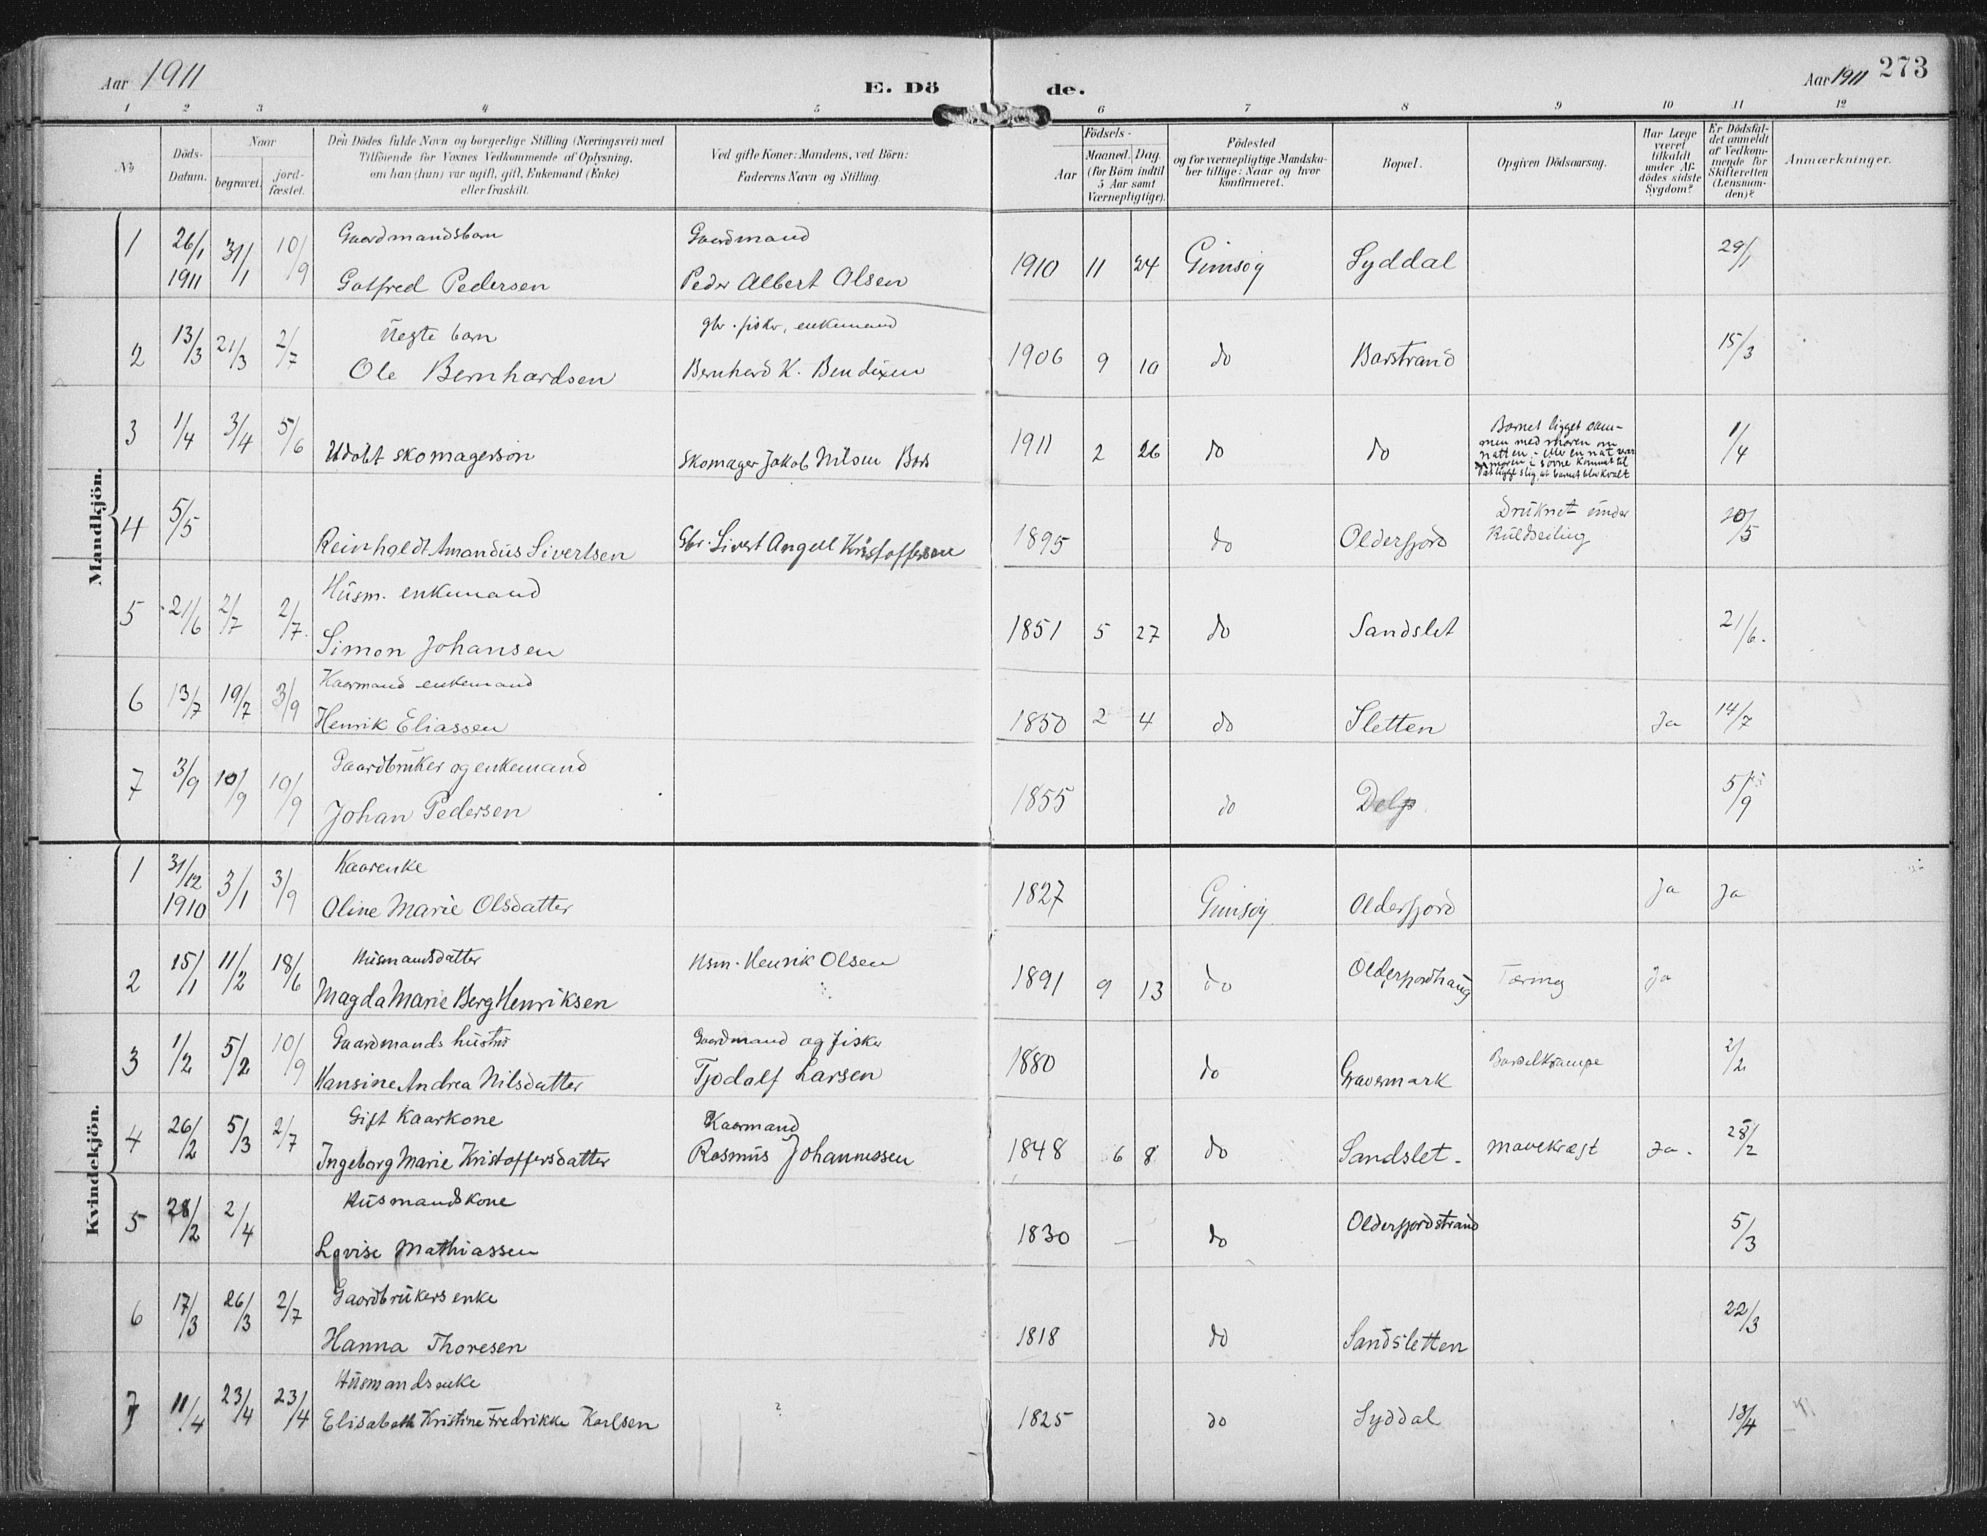 Aar 1911
E. Dö
de.
Aar 1911
273
1 2 3 4 5 6 7 8 9 10 11 12
No
Döds-
Datum.
Naar
begravet.
jord-
fæstet.
Den Dödes fulde Navn og borgerlige Stilling (Næringsvei) med
Tilföiende for Voxnes Vedkommende af Oplysning,
om han (hun) var ugift, gift, Enkemand (Enke)
eller fraskilt.
Ved gifte Koner: Mandens, ved Börn:
Faderens Navn og Stilling.
Födsels-
Aar
Maaned. Dag.
(for Börn indtil
5 Aar samt
Værnepligtige).
Födested
og for værnepligtige Mandska-
ber tillige: Naar og hvor
konfirmeret.
Bopæl.
Opgiven Dödsaarsag.
Har Læge
været
tilkaldt
under Af-
dödes sidste
Sygdom?
Er Dödsfal-
det anmeldt
af Vedkom-
mende for
Skifteretten
(Lensman-
den)?
Anmærkninger.
Mandkjön.
1 26/1 1911 31/1 10/9 Gaardmandsbarn Gaardmand
Gotfred Pedersen Peder Albert Olsen 1910 11 24 Gimsöy Syddal 29/1
2 13/3 21/3 2/7 Uegte barn gbr. fisker, enkemand
Ole Bernhardsen Bernhard K. Bendixen 1906 9 10 do Barstrand 15/3
3 1/4 3/4 5/6 Udöbt skomagersön Skomager Jakob Nilsen Bars 1911 2 26 do do 1/4
Barnet ligget sam-
men med moren om
natten.
moren i søvne kommet til
at ligge slig, at barnet blev kvalt
4 5/5 Reinholdt Amandus Sivertsen Gbr. Sivert Angell Kristoffersen 1895 do Oldersfjord Druknet under
Kuldseiling 20/5
5 21/6 2/7 2/7. Husm. enkemand
Simon Johansen 1851 5 27 do Sandslet 21/6.
6 13/7 19/7 3/9 Kaarmand enkemand
Henrik Eliassen 1850 2 4 do Sletten Ja 14/7
7 3/9 10/9 10/9 Gaardbruker og enkemand
Johan Pedersen 1855 do Delp. 5/9
Kvindekjön.
1 31/12 1910 3/1 3/9 Kaarenke
Oline Marie Olsdatter 1827 Gimsöy Oldersfjord Ja Ja
2 15/1 11/2 18/6 Husmandsdatter Hsm. Henrik Olsen
Magda Marie Berg Henriksen 1891 9 13 do Oldersfjordhaug Tæring Ja
3 1/2 5/2 10/9 Gaardmands hustru Gaardmand og fisker
Hansine Andrea Nilsdatter Tjodalf Larsen 1880 do Gravermark Barselkrampe 2/2
4 26/2 5/3 2/7 Gift Kaarkone Kaarmand
Ingeborg Marie Kristoffersdatter Rasmus Johannessen 1848 6 8 do Sandslet. Mavekræft Ja. 28/2
5 28/2 2/4 Husmandskone
Lovise Mathiassen 1830 — do Oldersfjordstrand 5/3
6 17/3 26/3 2/7 Gaardbrukers enke
Hanna Thoresen 1818 do Sandsletten 22/3
7 11/4 23/4 23/4 Husmandsenke
Elisabeth Kristine Fredrikke Karlsen ? 1825 do Syddal 13/4